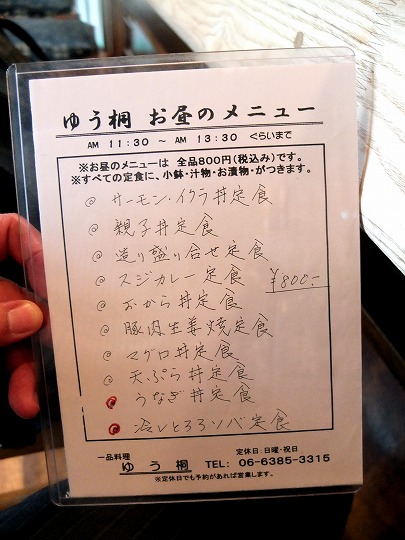 ゆう桐 お昼のメニュー
AM 11:30 ～ AM 13:30 ぐらいまで
※お昼のメニューは 全品800円(税込み)です。
※すべての定食に、小鉢・汁物・お漬物・がつきます。
@ サーモン・イクラ丼定食
@ 親子丼定食
@ 造り盛り合せ定食
@ スジカレー定食
¥800.-
@ おから丼定食
@ 豚肉生姜焼定食
@ マグロ丼定食
@ 天ぷら丼定食
@ うなぎ丼定食
@ 冷しとろろソバ定食
一品料理
定休日:日曜・祝日
ゆう桐 TEL: 06-6385-3315
※定休日でも予約があれば営業します。